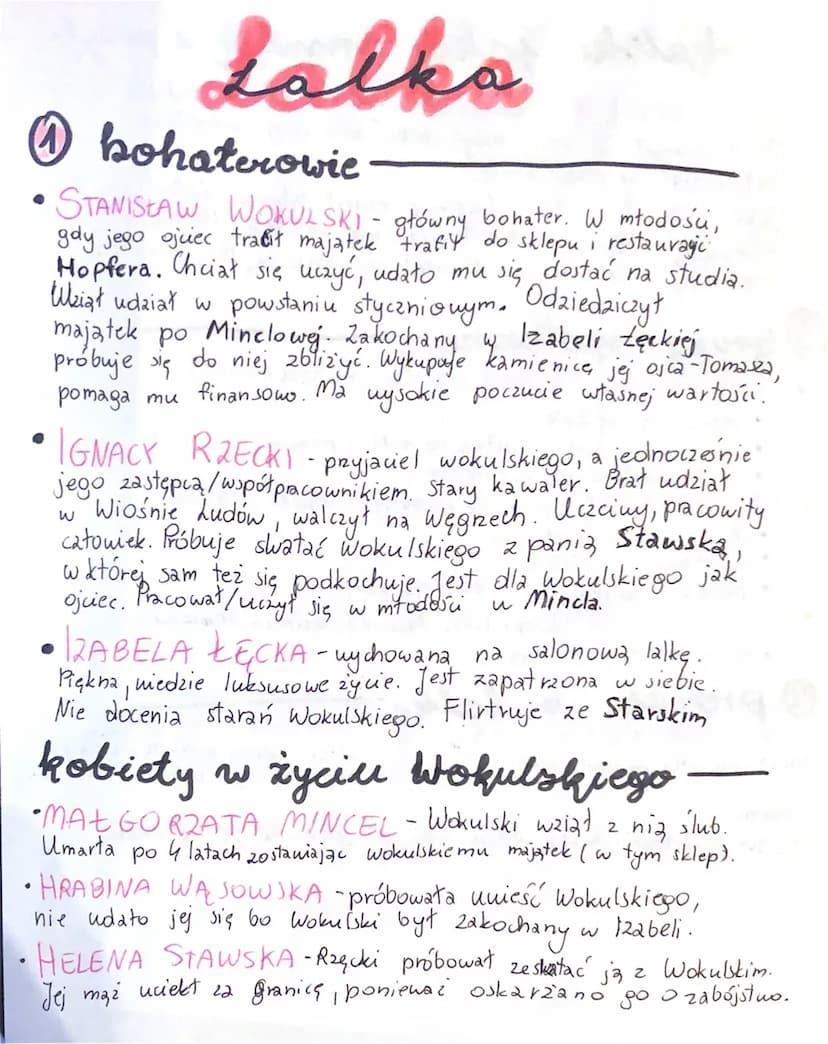 Lalka
1 bohaterowie
• STANISŁAW WOKULSKI - główny bohater. W młodości,
gdy jego ojciec tracił majątek trafił do sklepu i restauracji
Hopfera. Chciał się uczyć, udało mu się dostać na studia.
Wziął udział w powstaniu styczniowym. Odziedziczył
majątek po Minclowej. Zakochany w Izabeli Łęckiej
próbuje się do niej zbliżyć. Wykupuje kamienicę jej ojca - Tomasza,
pomaga mu finansowo. Ma wysokie poczucie własnej wartości.
• IGNACY RZECKI - przyjaciel wokulskiego, a jednocześnie
jego zastępcą/współpracownikiem. Stary kawaler. Brał udział
w Wiośnie Ludów, walczył na Węgrzech. Uczciwy, pracowity
człowiek. Próbuje swatać Wokulskiego z panią Stawską,
w której sam też się podkochuje. Jest dla Wokulskiego jak
ojciec. Pracował/uczył się w młodości u Mincla.
• IZABELA ŁĘCKA - wychowana na salonową lalkę.
Piękna, wiedzie luksusowe życie. Jest zapatrzona w siebie.
Nie docenia starań Wokulskiego. Flirtruje ze Starskim
kobiety w życiu Wokulskiego
• MAŁGORZATA MINCEL - Wokulski wziął z nią ślub.
Umarła po 4 latach zostawiając wokulskiemu majątek (w tym sklep).
• HRABINA WĄSOWSKA - próbowała uwieść Wokulskiego,
nie udało jej się bo Wokulski był zakochany w Izabeli.
• HELENA STAWSKA - Rzęcki próbował zeswatać ją z Wokulskim.
Jej mąż uciekł za granicę, ponieważ oskarżano go o zabójstwo.